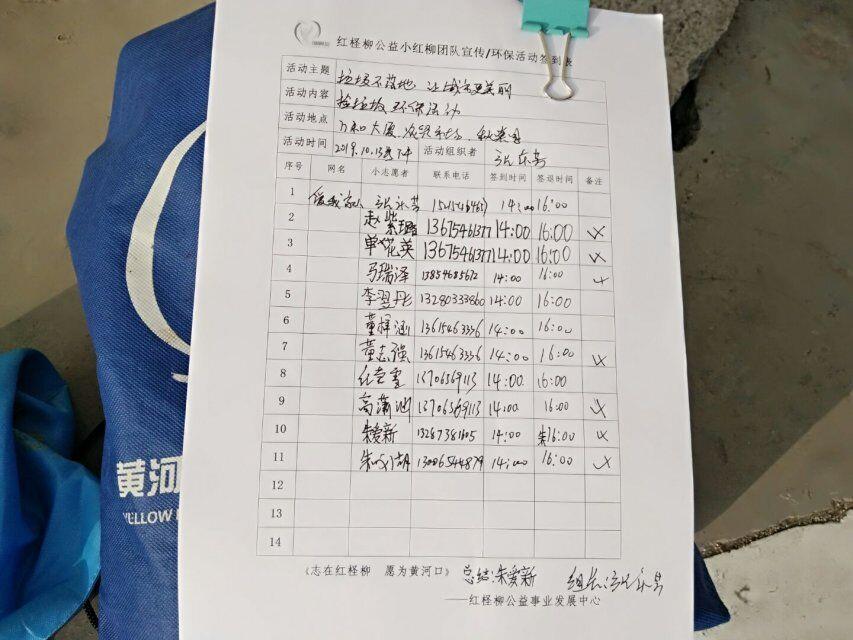 红柽柳公益小红柳团队宣传/环保活动签到表
活动主题 垃圾不落地 让城市更美丽
活动内容 捡垃圾 环保活动
活动地点 万和大厦
活动时间 2019.10.13 下午 活动组织者
序号 网名 小志愿者 联系电话 签到时间 签退时间 备注
1 14:00 16:00
2 赵紫璐 13675461377 14:00 16:00
3 单花英 13675461377 14:00 16:00
4 马瑞泽 13854685672 14:00 16:00
5 李翌彤 13280333860 14:00 16:00
6 董梓涵 13615463336 14:00 16:00
7 董志强 13615463336 14:00 16:00
8 13706369113 14:00 16:00
9 高潇 13706369113 14:00 16:00
10 朱爱新 14:00 16:00
11 13006544879 14:00 16:00
12
13
14
《志在红柽柳 愿为黄河口》 总结:朱爱新 组长:
——红柽柳公益事业发展中心
黄河
YELLOW